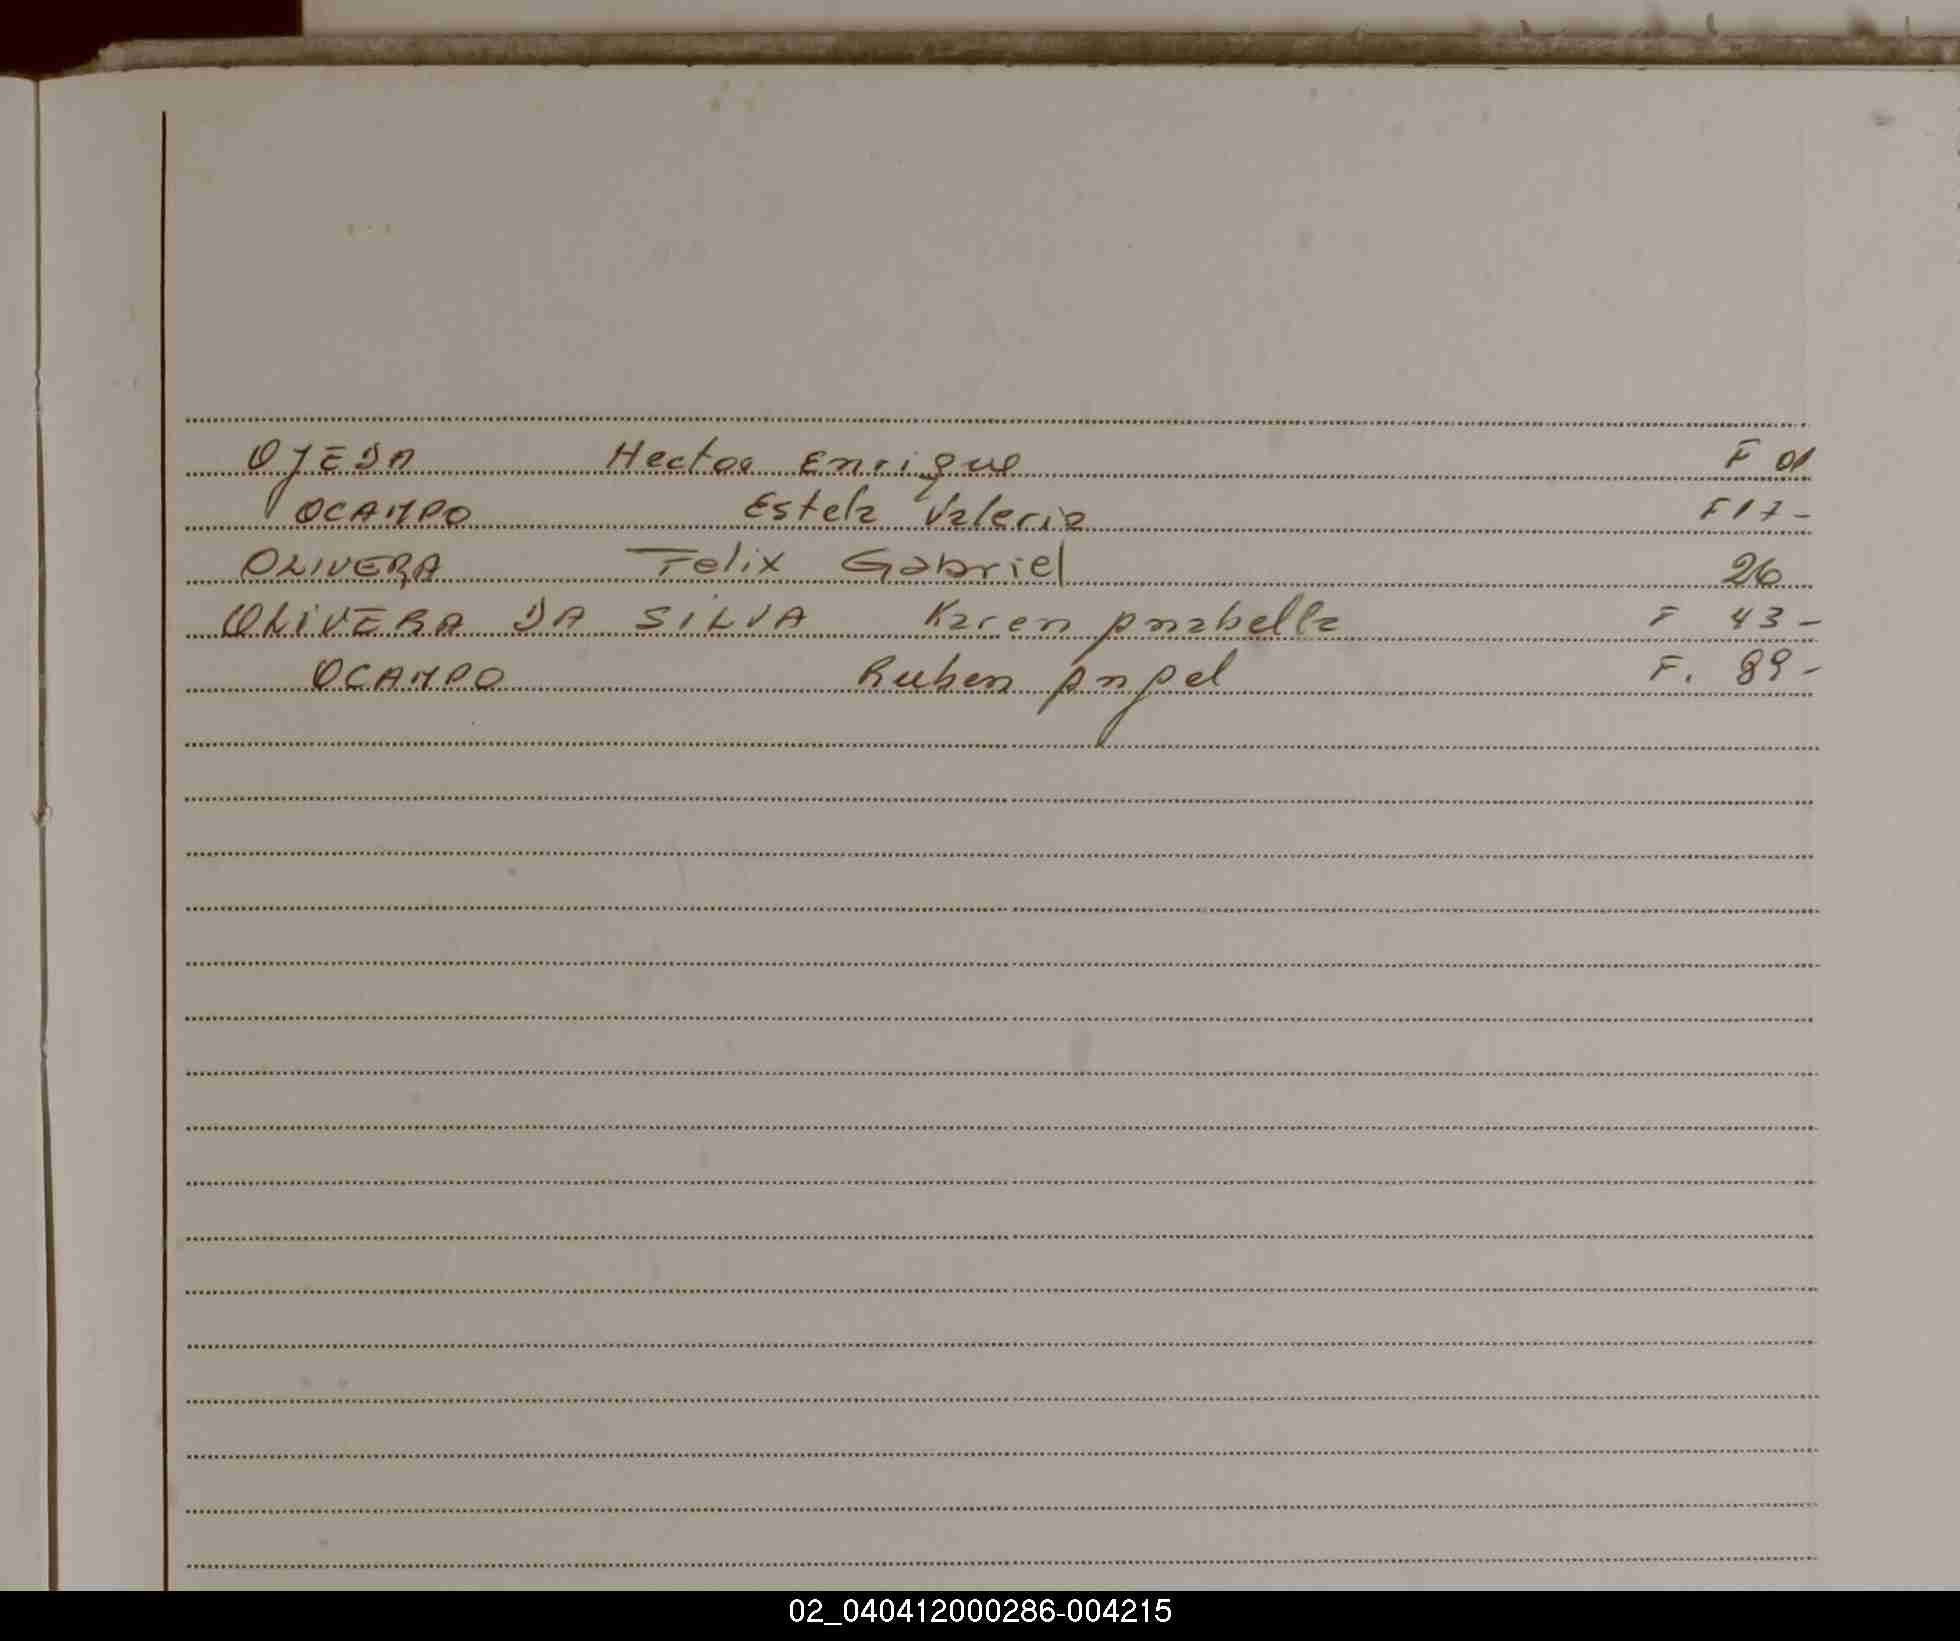 OJEDA Hector Enrique F 01
OCAMPO Estela Valeria F 17-
OLIVERA Felix Gabriel 26
OLIVERA DA SILVA Karen Anabella F 43-
OCAMPO Ruben Angel F. 89-
02_040412000286-004215